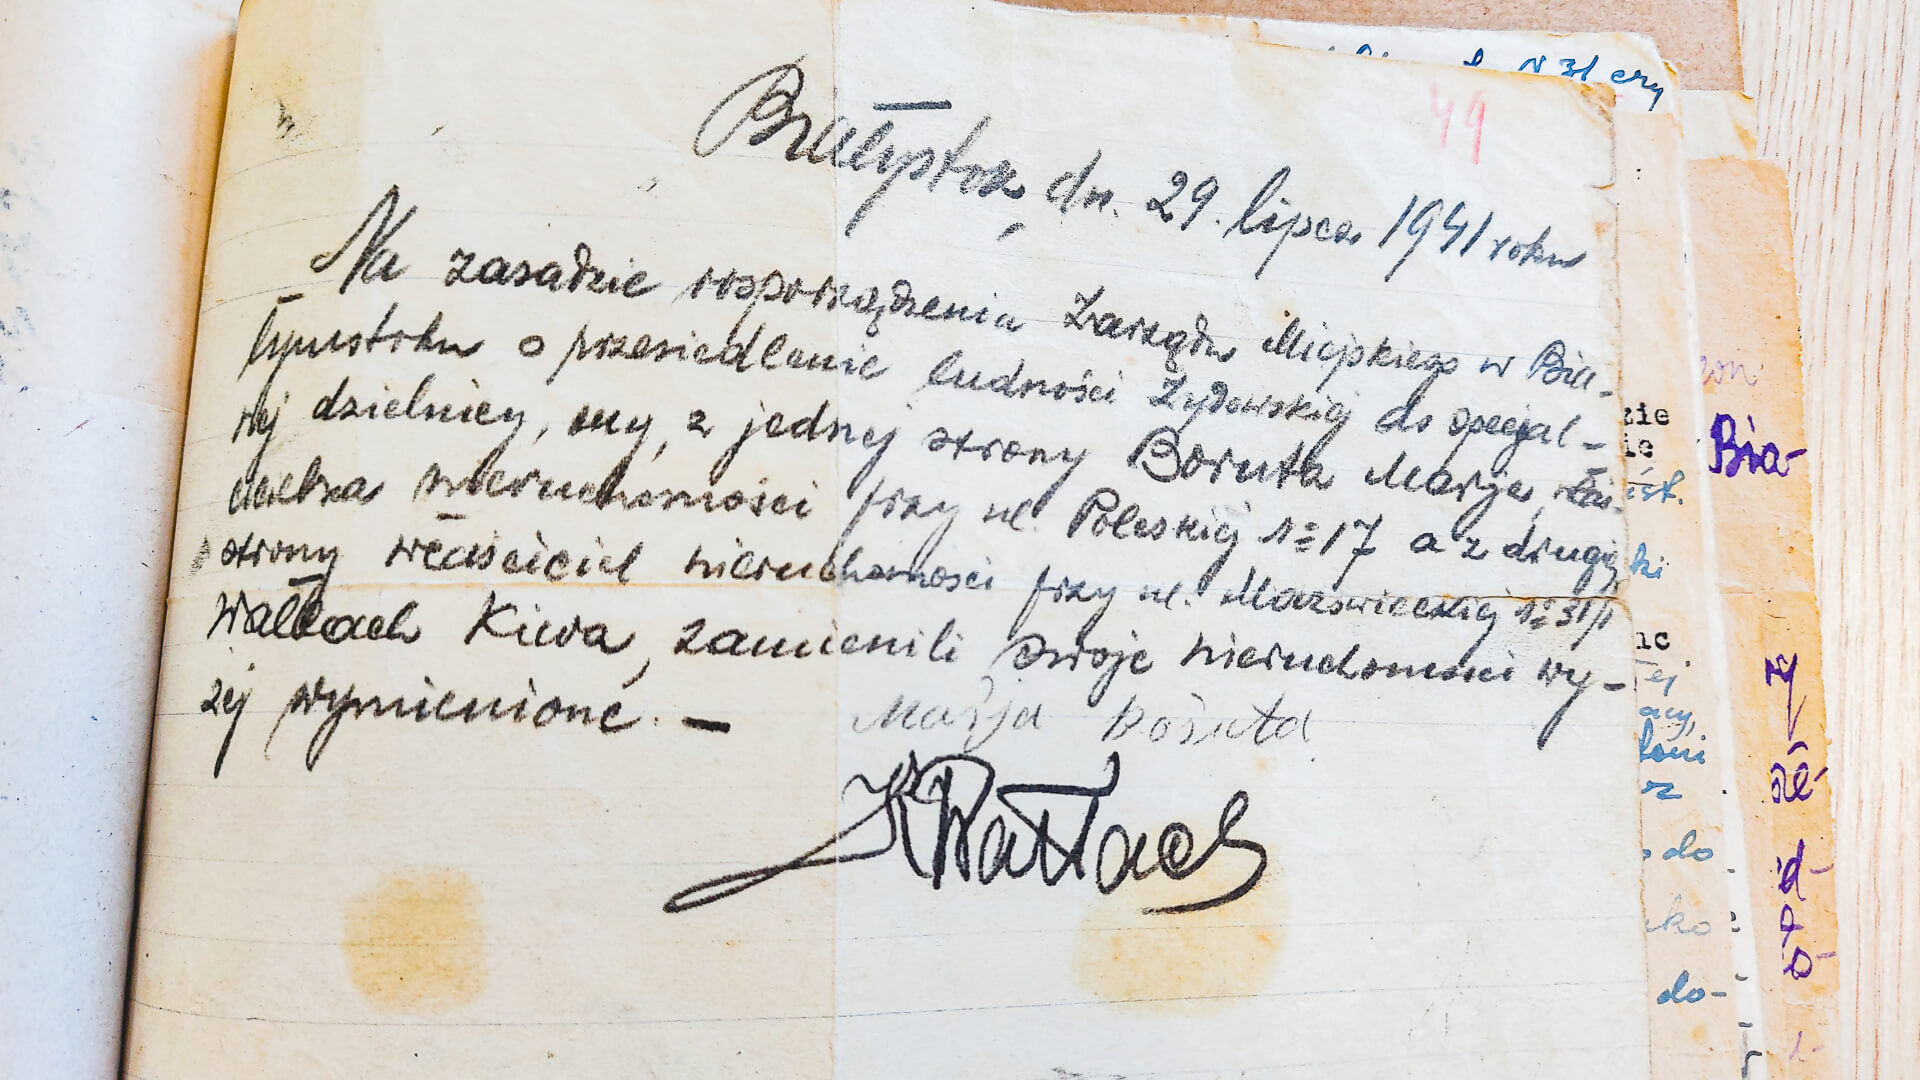 49
Białystok, dn. 29. lipca 1941 roku
Na zasadzie rozporządzenia Zarządu Miejskiego w Bia-
łymstoku o przesiedlenie ludności żydowskiej do specjal-
nej dzielnicy, my, z jednej strony Boruta Marja, właś-
cicielka nieruchomości przy ul. Poleskiej № 17 a z drugiej
strony właściciel nieruchomości przy ul. Mazowieckiej № 31/1
Wałłach Kiwa, zamienili swoje nieruchomości wy-
żej wymienione. —
Marja Boruta
KWałłach
N 31 czy
zie
ie
Bia-
ist.
ki
nc
ej
acy,
rz
do
ko
do-